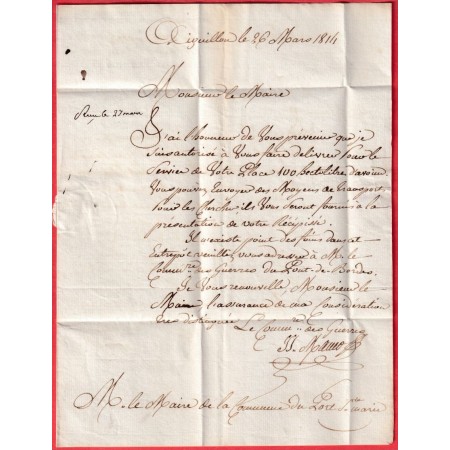 Aiguillon le 26 Mars 1814
Monsieur le Maire
Reçu le 27 mars
J'ai l'honneur de Vous prevenir que je
suis autorisé à Vous faire délivrer pour le
Service de Votre Place 100 hectolitre d'avoine
Vous pouvez Envoyer des Moyens de transport
pour les chercher ils Vous Seront fournis à la
presentation de votre Récépissé
Il n'existe point des foins dans cet
Entrepôt veuillez vous adresser à M. le
Commre. des Guerres du Pont-de-Bordes
Je Vous renouvelle, Monsieur le
Maire l'assurance de ma Consideration
tres distinguée
Le Commre. des Guerres
M. le Maire de la Commune du Port Ste. marie